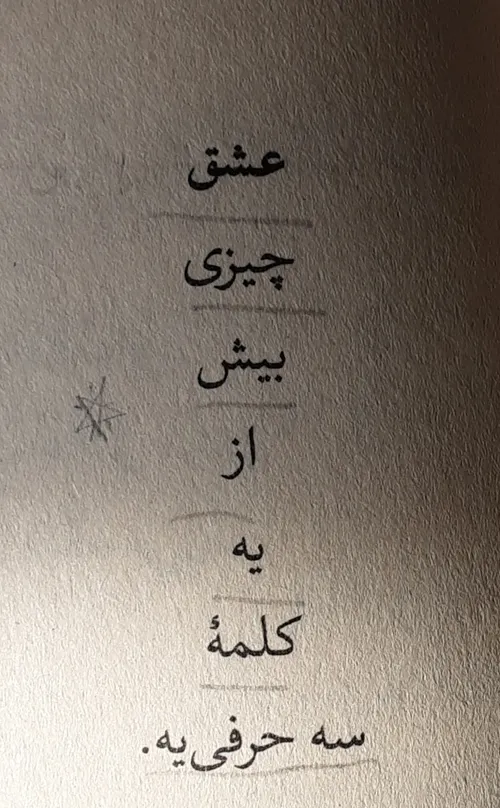 عشق
چیزی
بیش
از
یه
کلمهٔ
سه حرفی‌یه.